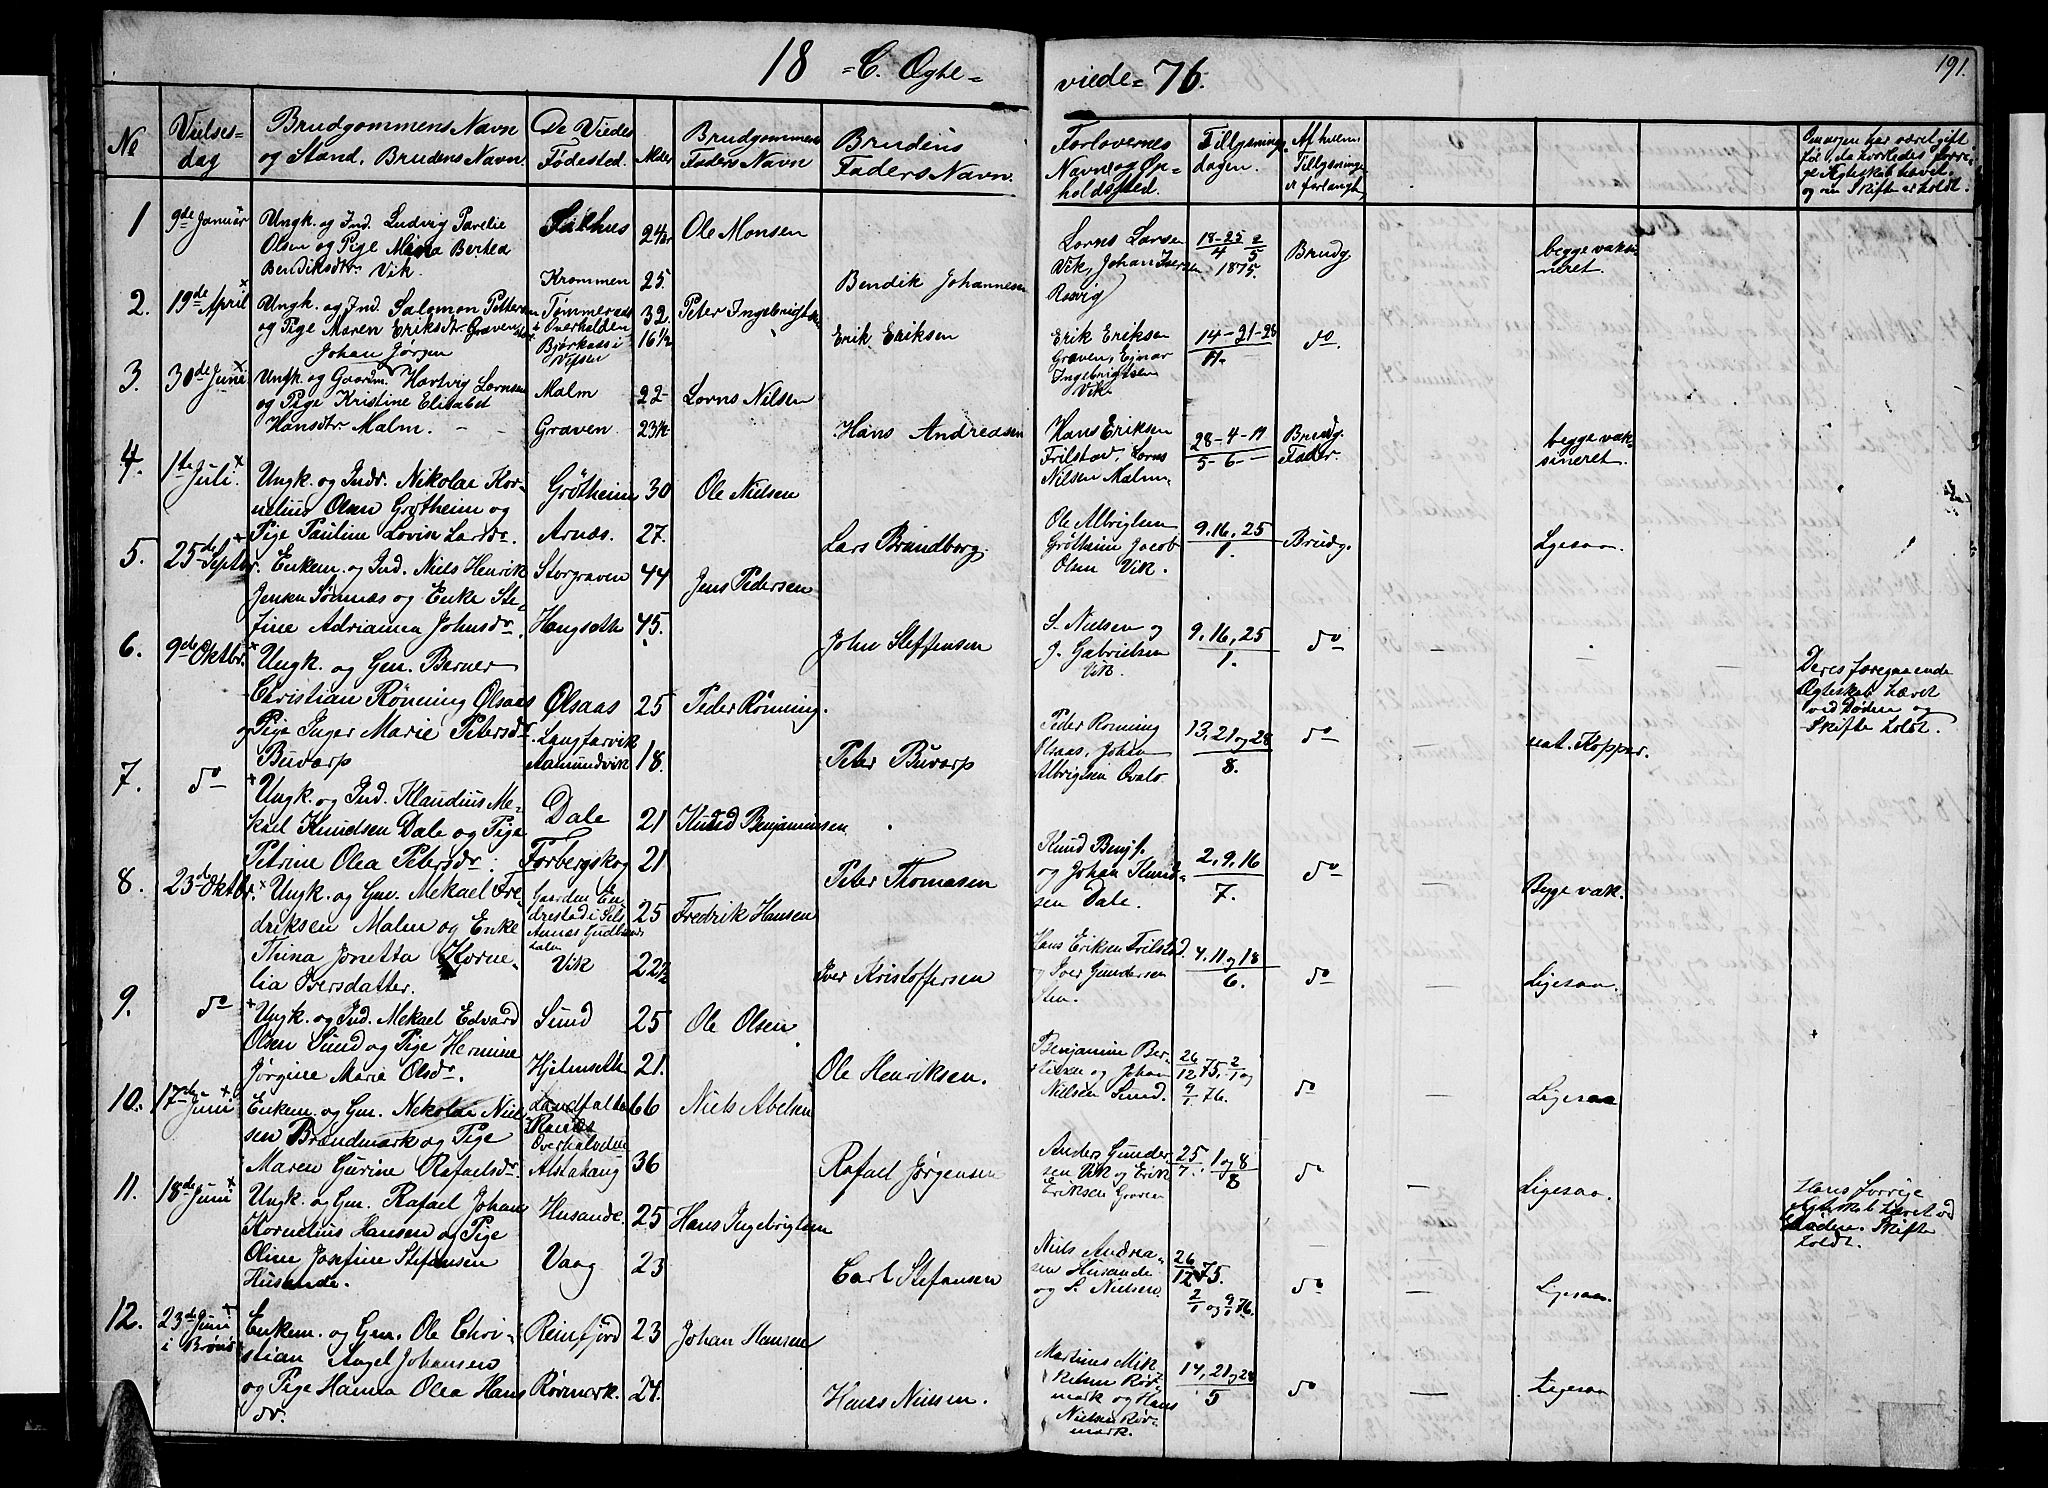 18 = C. Ægte=
viede= 76.
191.
No
Vielses-
dag
Brudgommens Navn
og Stand. Brudens Navn.
De Viedes
Fødested.
Alder
Brudgommens
Faders Navn
Brudens
Faders Navn.
Forlovernes
Navne og Op-
holdssted.
Tillysnings-
dagen.
Af hvem
Tillysninge
er forlangt,
Om nogen har været gift
før, da hvorledes forri-
ge Ægteskab hævet
og om Skifte er holdt.
1
9de Januar
Ungk. og Ind. Ludvig Parelie
Olsen og Pige Berthea
Bendiksdtr. Vik.
24
Krommen 25.
Ole Monsen
Bendik Johannesen
Lorns Larsen
Vik, Johan
Rosvig
18-25 2
4 5
1875.
Brudg.
begge vaksi
neret.
2.
19de April
Ungk. og Ind. Salomon Pettersen
og Pige Maren Eriksdtr Graven
Overhalden
Vefsen
32.
16 1/2
Peter Ingebrigtsen
Erik Eriksen
Erik Eriksen
Graven, Ejnar
Ingebrigtsen
Vik.
14-21-28
do
3.
30de Juni
Johan Jørgen
Ungk. og Gaardm. Hartvig Lornsen
og Pige Kristine Elisabet
Hansdtr. Malm.
Malm
Graven.
22
23 1/2
Lorns Nilsen
Hans Andreasen
Hans Eriksen
Frilstad, Lorns
Nilsen Malm.
28-4-11
5-6-
Brudg.
Fader.
begge vak-
sineret.
4.
1te Juli.
Ungk. og Indr. Nikolai Kor-
nelius Olsen Grøtheim og
Pige Pauline Lovise Larsdr.
Grøtheim
Arnæs.
30
27.
Ole Nielsen
Lars Brandborg.
Ole Albrigtsen
Grøtheim Jacob
Olsen Vik.
9, 16, 25
1.
Brudg.
Ligesaa
5.
25de Septbr.
Enkem. og Ind. Niels Henrik
Jensen Sørnæs og Enke Ste-
fine Adrianna Johnsdr.
Storgraven
Haugseth
44
45.
Jens Pedersen
John Steffensen
S. Nielsen og
J. Gabrielsen
Vik
9, 16, 25
1.
do
Deres foregaaende
Ægteskab hævet
ved Døden og
Skifte holdt.
6.
9de Oktbr.
Ungk. og Gm. Berner
Christian Rønning Olsaas
og Pige Inger Marie Petersdr
Buvarp
Olsaas
Aamundvik
25
18.
Peder Rønning.
Peter Buvarp
Peder Rønning
Olsaas, Johan
Albrigtsen
13, 21 og 28
8.
do
nat. Kopper.
7.
do
Ungk. og Ind. Klaudius Me-
kael Knudsen Dale og Pige
Petrine Olea Petersdr.
Dale
Forbergskog
21
21
Knud Benjaminsen
Peter Thomasen
Knud Benj.
og Johan Knud-
sen Dale.
2, 9, 16
7.
do
Begge vak.
8.
23de Oktbr.
Ungk. og Gm. Mekael Fre-
driksen Malm og Enke
Thina Jonetta Korne-
lia Iversdatter.
Gaarden
Vik
25
22 1/2
Fredrik Hansen
Iver Kristoffersen
Hans Eriksen Frilstad.
og Iver Gundersen
Sten.
4, 11 og 18
6.
do
Ligesaa.
9.
do
Ungk. og Ind. Mekael Edvard
Olsen Sund og Pige Hermine
Jørgine Marie Olsdr.
Sund
Hjelmseth
25
21.
Ole Olsen
Ole Henriksen.
Benjamine Ber-
og Johan
Nielsen Sund.
26 2
12 75, 1 og
9
1 76.
do
Ligesaa
10.
17de Juni
Enkem. og Gm. Nekolai Niel-
sen Brandmark og Pige
Maren Gurine Rafaelsdr.
Overhalvden
Alstahaug
66
36
Niels Abelsen
Rafael Jørgensen
Anders Gunder-
sen Vik og Erik
Eriksen Graven
25 1 og 8
7 8
do
Ligesaa.
Hans forrige
Ægteskab hævet ved
Døden. Skifte
holdt.
11.
18de Juni
Ungk. og Gm. Rafael Johan
Kornelius Hansen og Pige
Oline Josefine Stefansen
Husande.
Husande.
Vaag
25
23
Hans Ingebrigtsen
Carl Stefansen
Niels Andrea-
sen Husande
og S. Nielsen.
26
12 75.
2 9
1 og 1 76.
do
Ligesaa.
12.
23de Juni
i Brønø
Enkem. og Gm. Ole Chri-
stian Angel Johansen
og Pige Hanna Olea Hans
dr.
Reinfjord
Rørmark.
23
24.
Johan Hansen
Hans Nielsen.
Martines Mik
kelsen Rør-
mark og Hans
Nielsen Rør-
mark.
14, 21 og 28
5
do
Ligesaa